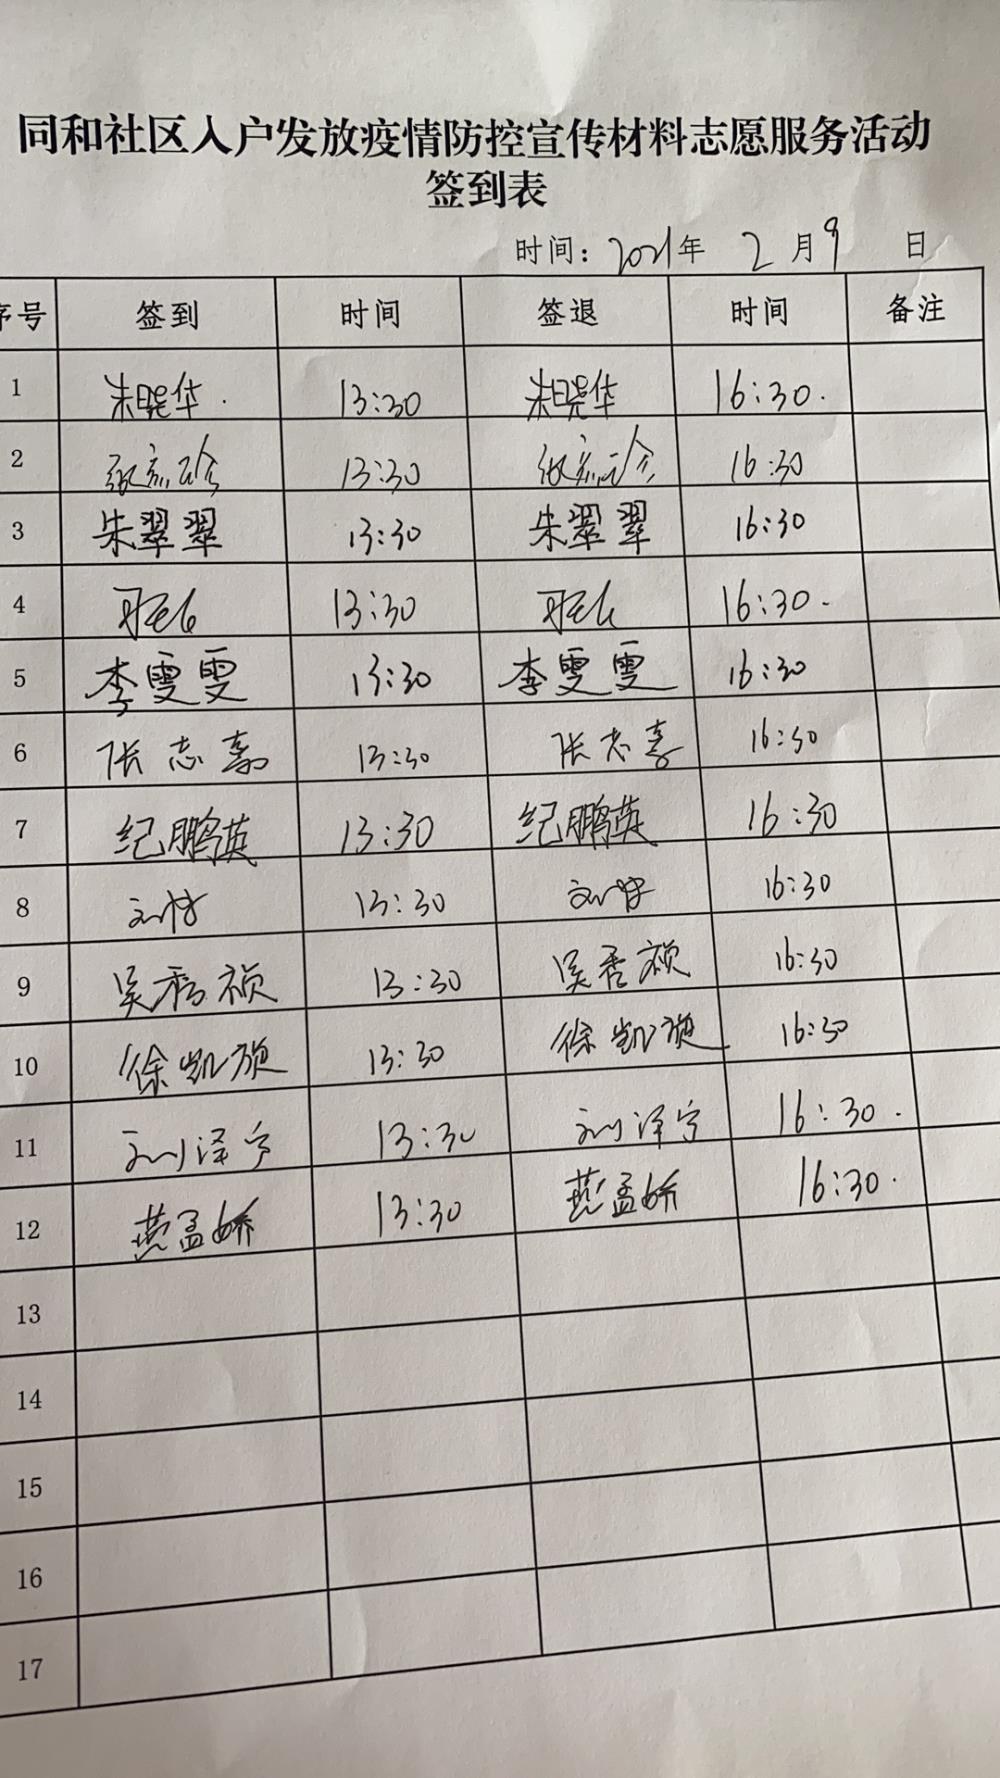 同和社区入户发放疫情防控宣传材料志愿服务活动
签到表
时间: 2021年 2月9 日
序号 签到 时间 签退 时间 备注
1 朱晓华 13:30 朱晓华 16:30.
2 13:30 16:30
3 朱翠翠 13:30 朱翠翠 16:30
4 13:30 16:30.
5 李雯雯 13:30 李雯雯 16:30
6 张志嘉 13:30 张志喜 16:30
7 纪鹏英 13:30 纪鹏英 16:30
8 刘 13:30 刘 16:30
9 吴秀祯 13:30 吴秀祯 16:30
10 徐凯旋 13:30 徐凯旋 16:30
11 刘泽宁 13:30 刘泽宁 16:30.
12 燕孟娇 13:30 燕孟娇 16:30.
13
14
15
16
17